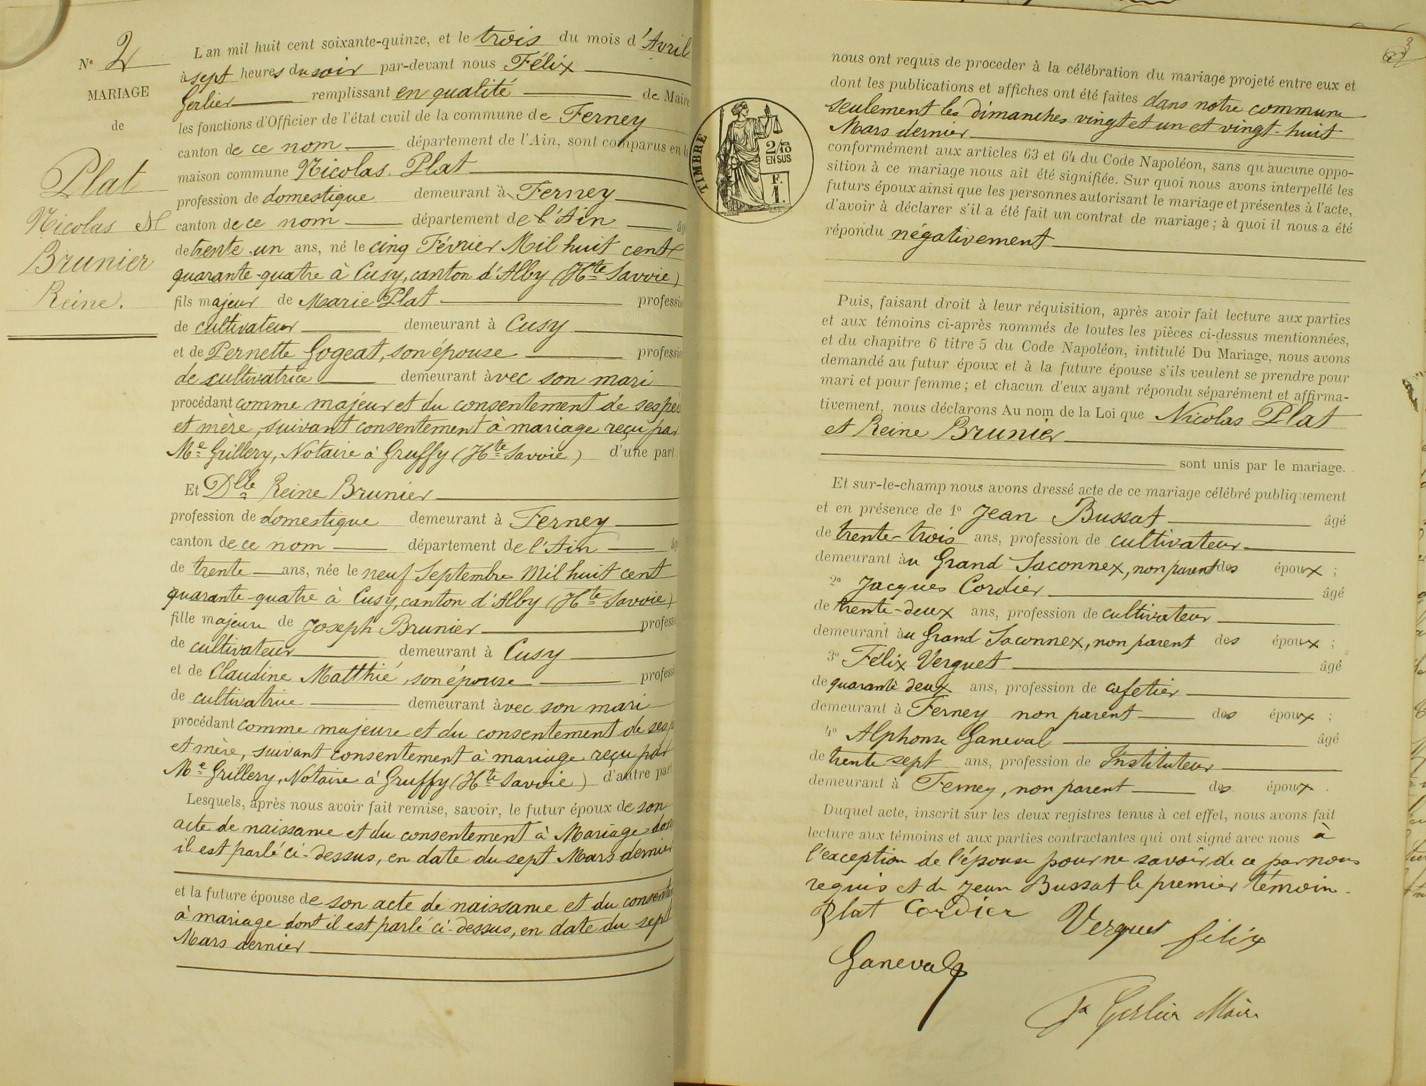 N° 2
MARIAGE
de
Plat
Nicolas et
Brunier
Reine.
L'an mil huit cent soixante-quinze, et le trois du mois d'Avril
à sept heures du soir par-devant nous Félix
Gerlier remplissant en qualité de Maire
les fonctions d'Officier de l'état civil de la commune de Ferney
canton de ce nom département de l'Ain, sont comparus en la
maison commune Nicolas Plat
profession de domestique demeurant à Ferney
canton de ce nom département de l'Ain âg
de trente un ans, né le cinq Février Mil huit cent
quarante-quatre à Cusy, canton d'Alby (Hte Savoie)
fils majeur de Marie Plat profession
de cultivateur demeurant à Cusy
et de Pernette Gogeat, son épouse profession
de cultivatrice demeurant avec son mari
procédant comme majeur et du consentement de ses père
et mère, suivant consentement à mariage reçu par
Me Grillery, Notaire à Gruffy (Hte Savoie) d'une part
Et Dlle Reine Brunier
profession de domestique demeurant à Ferney
canton de ce nom département de l'Ain âg
de trente ans, née le neuf Septembre Mil huit cent
quarante-quatre à Cusy, canton d'Alby (Hte Savoie)
fille majeure de Joseph Brunier profess
de cultivateur demeurant à Cusy
et de Claudine Matthié, son épouse profess
de cultivatrice demeurant avec son mari
procédant comme majeure et du consentement de ses p
et mère, suivant consentement à mariage reçu par
Me Grillery, Notaire à Gruffy (Hte Savoie) d'autre part
Lesquels, après nous avoir fait remise, savoir, le futur époux de son
acte de naissance et du consentement à Mariage dont
il est parlé ci-dessus, en date du sept Mars dernier
et la future épouse de son acte de naissance et du consent
à mariage dont il est parlé ci-dessus, en date du sept
Mars dernier
3
TIMBRE
2/10
EN SUS
F.
1.
nous ont requis de proceder à la célébration du mariage projeté entre eux et
dont les publications et affiches ont été faites dans notre commune
seulement les dimanches vingt et un et vingt-huit
Mars dernier
conformément aux articles 63 et 64 du Code Napoléon, sans qu'aucune oppo-
sition à ce mariage nous ait été signifiée. Sur quoi nous avons interpellé les
futurs époux ainsi que les personnes autorisant le mariage et présentes à l'acte,
d'avoir à déclarer s'il a été fait un contrat de mariage ; à quoi il nous a été
répondu négativement
Puis, faisant droit à leur réquisition, après avoir fait lecture aux parties
et aux témoins ci-après nommés de toutes les pièces ci-dessus mentionnées,
et du chapitre 6 titre 5 du Code Napoléon, intitulé Du Mariage, nous avons
demandé au futur époux et à la future épouse s'ils veulent se prendre pour
mari et pour femme ; et chacun d'eux ayant répondu séparément et affirma-
tivement, nous déclarons Au nom de la Loi que Nicolas Plat
et Reine Brunier
sont unis par le mariage.
Et sur-le-champ nous avons dressé acte de ce mariage célébré publiquement
et en présence de 1° Jean Bussat âgé
de trente-trois ans, profession de cultivateur
demeurant au Grand Saconnex, non parent des époux ;
2° Jacques Cordier âgé
de trente-deux ans, profession de cultivateur
demeurant au Grand Saconnex, non parent des époux ;
3° Félix Verguet âgé
de quarante deux ans, profession de cafetier
demeurant à Ferney non parent des époux ;
4° Alphonse Ganeval âgé
de trente sept ans, profession de Instituteur
demeurant à Ferney, non parent des époux .
Duquel acte, inscrit sur les deux registres tenus à cet effet, nous avons fait
lecture aux témoins et aux parties contractantes qui ont signé avec nous à
l'exception de l'épouse pour ne savoir de ce par nous
requis et de Jean Bussat le premier témoin.
Plat Cordier Verguet félix
Ganeval
Gerlier Maire